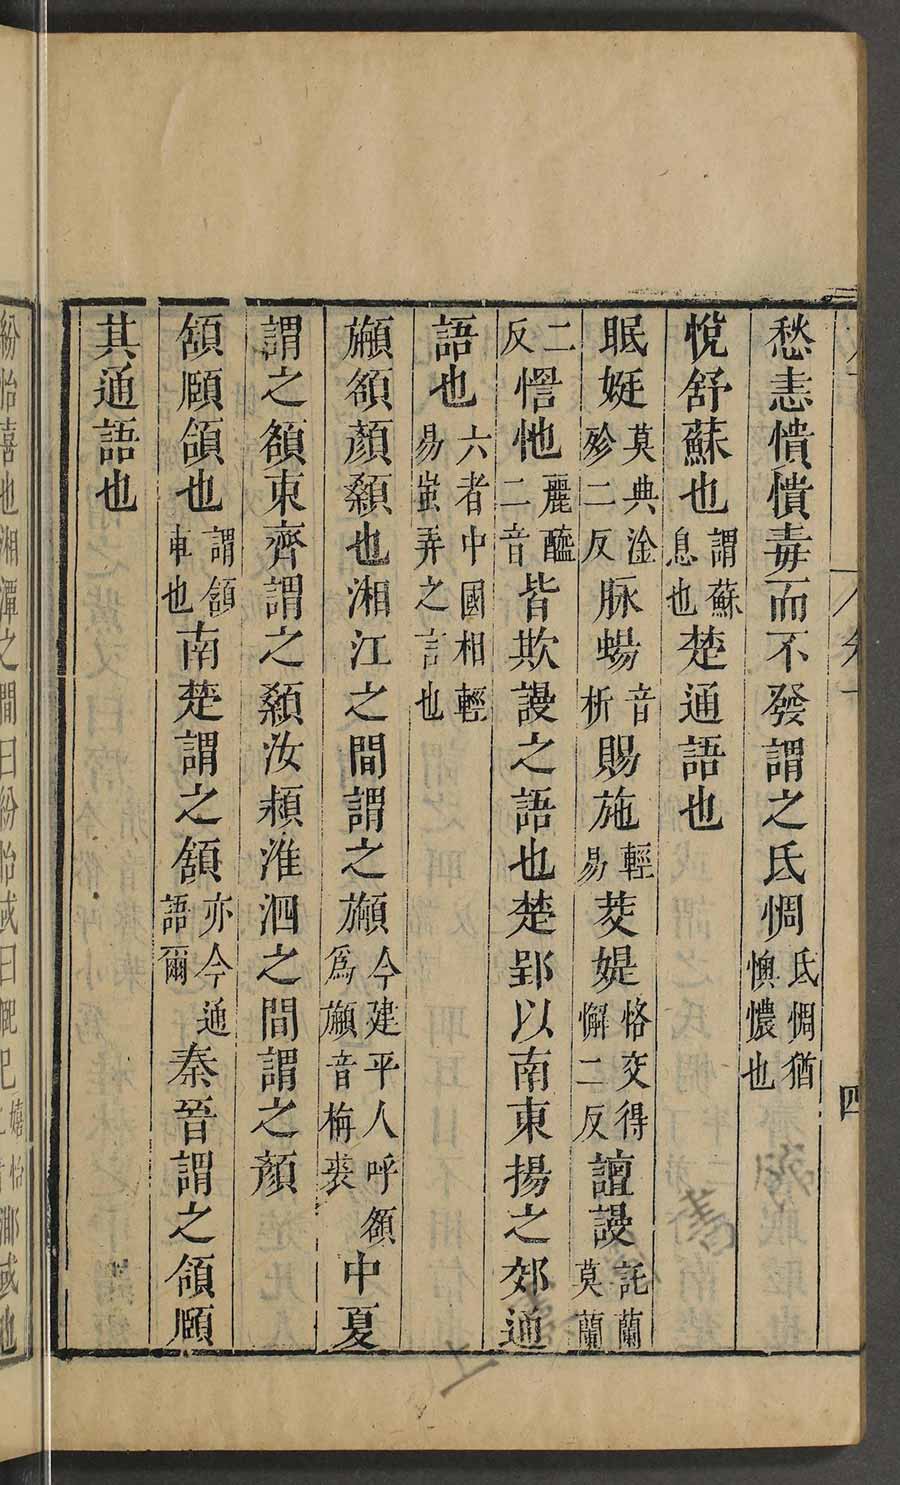 愁恚憒憒毒而不發謂之氐惆氐惆猶懊憹也
悅舒蘇也謂蘇息也楚通語也
眠娗莫典淦殄二反脉蜴音析賜施輕易茭媞恪交得懈二反譠謾託蘭莫蘭
二反㦟忚麗醯二音皆欺謾之語也楚郢以南東揚之郊通
語也六者中國相輕易蚩弄之言也
䫤頟顏顙也湘江之間謂之䫤今建平人呼頟爲䫤音旃裘中夏
謂之頟東齊謂之顙汝潁淮泗之間謂之顏
頷頤頜也謂頷車也南楚謂之頷亦今通語爾秦晉謂之頜頤
其通語也
四
紛怡喜也湘潭之間曰紛怡或曰巸巳